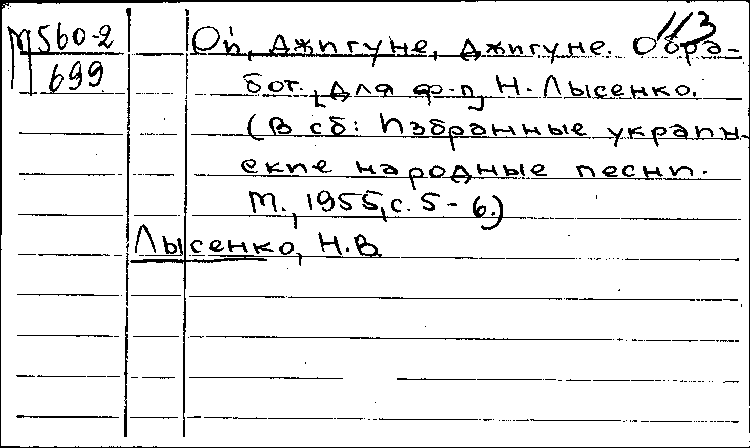 113
М 560-2
699
Ой, джигуне, джигуне. Обра-
бот. [для ф-п] Н. Лысенко.
(В сб: Избранные украин-
ские народные песни.
М., 1955, с. 5-6.)
Лысенко, Н.В.